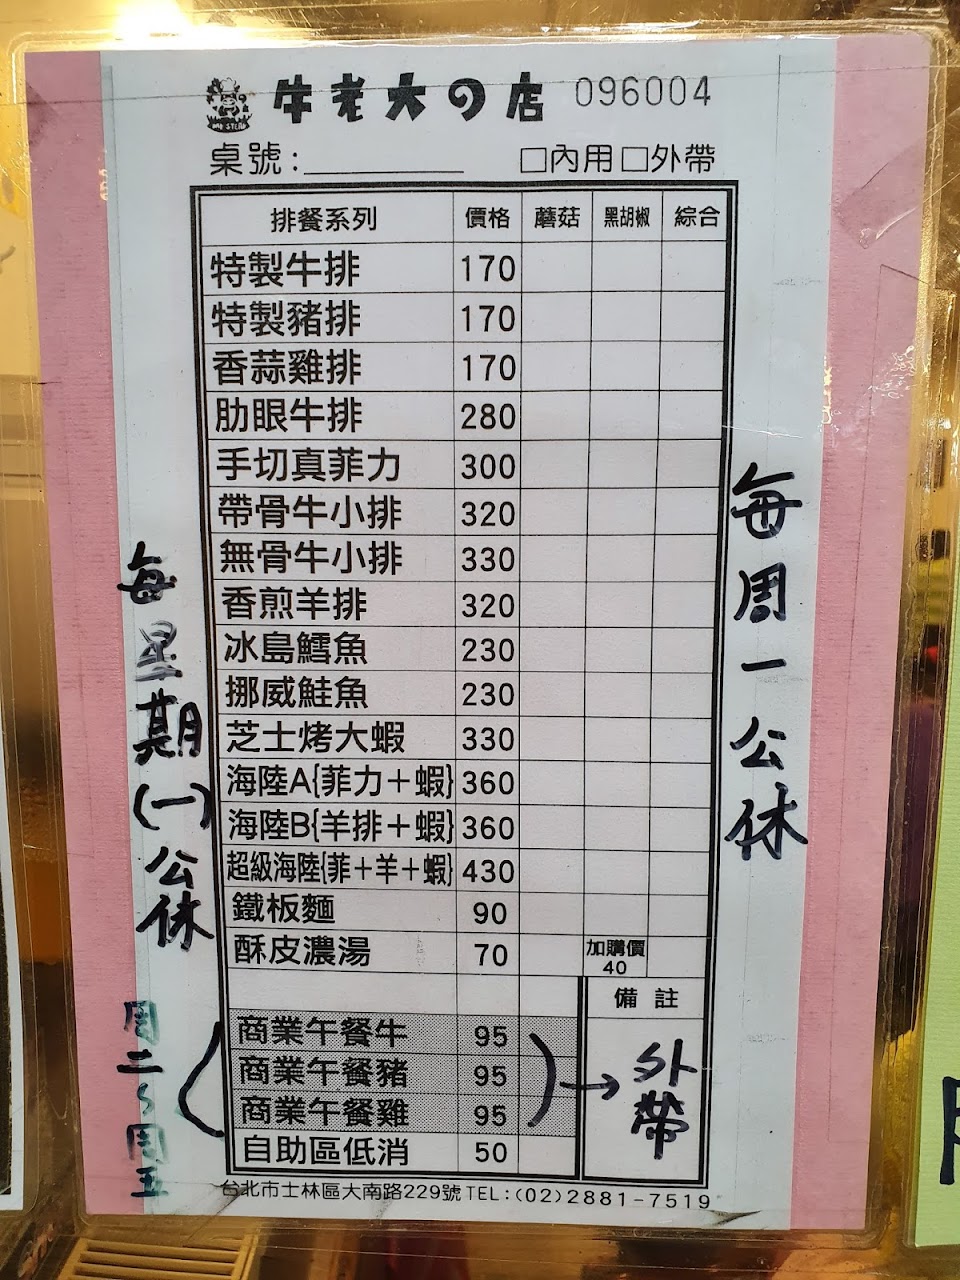 牛老大の店 096004
桌號: □內用 □外帶
排餐系列 價格 蘑菇 黑胡椒 綜合
特製牛排 170
特製豬排 170
香蒜雞排 170
肋眼牛排 280
手切真菲力 300
帶骨牛小排 320
無骨牛小排 330
香煎羊排 320
冰島鱈魚 230
挪威鮭魚 230
芝士烤大蝦 330
海陸A{菲力+蝦} 360
海陸B{羊排+蝦} 360
超級海陸{菲+羊+蝦} 430
鐵板麵 90
酥皮濃湯 70 加購價 40
備註
商業午餐牛 95
商業午餐豬 95
商業午餐雞 95
自助區低消 50
→外帶
台北市士林區大南路229號 TEL:(02)2881-7519
每星期(一)公休
周二~周五
每周一公休